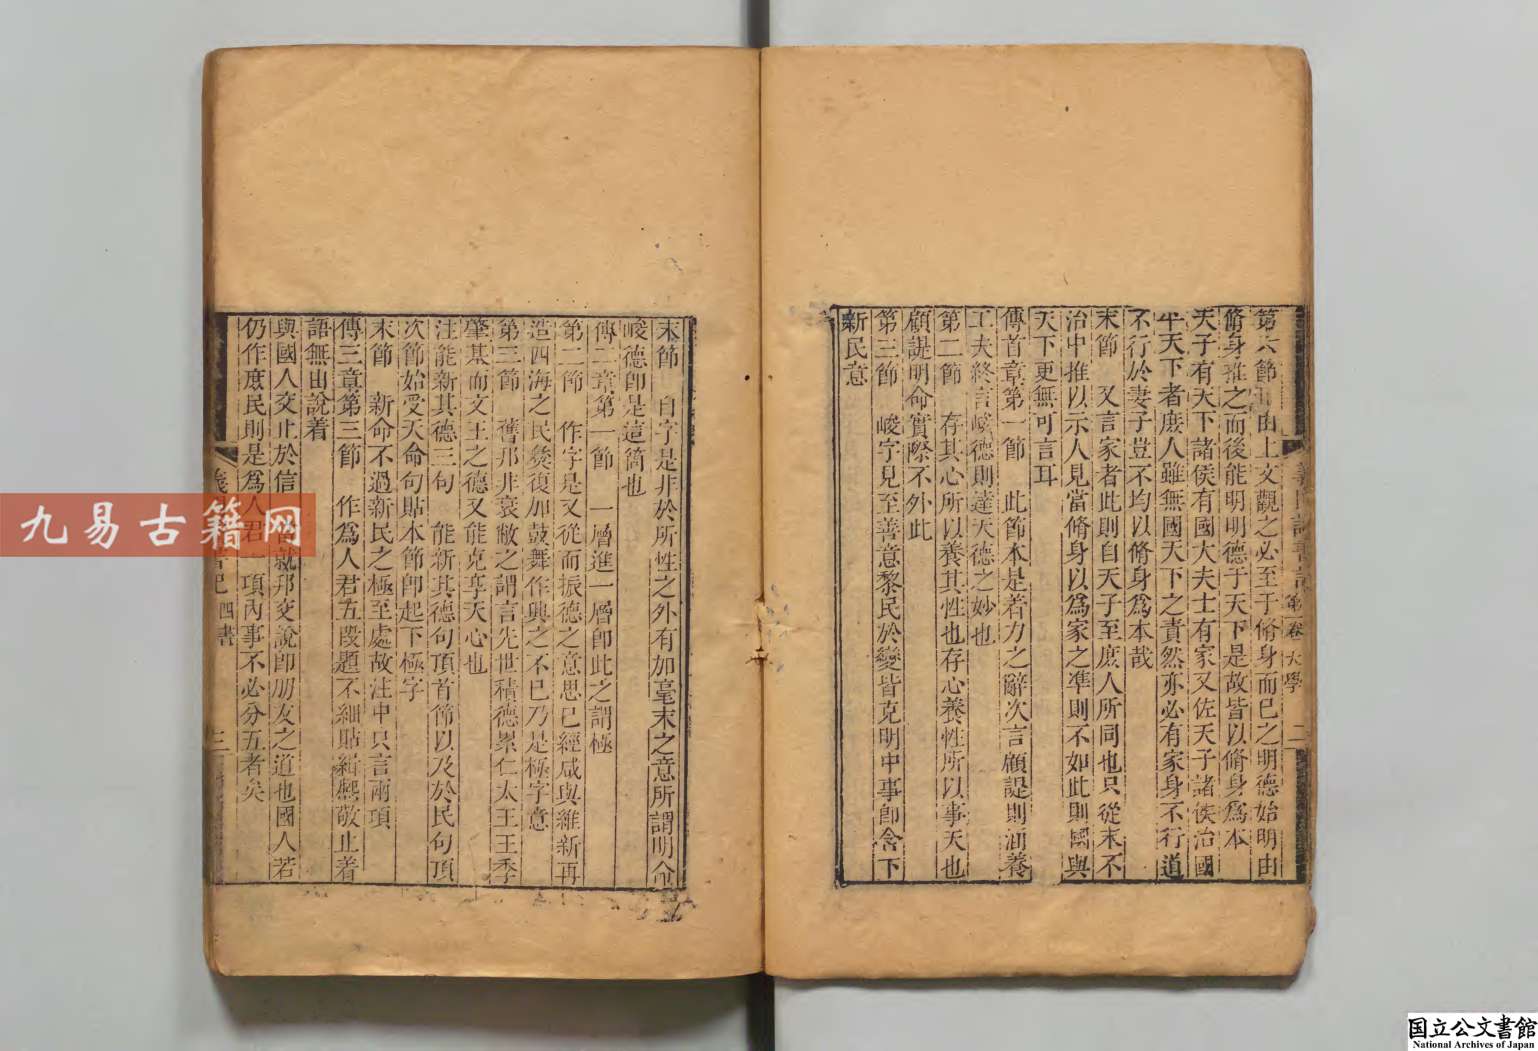 第六節 由上文觀之必至于脩身而已之明德始明由
脩身推之而後能明明德于天下是故皆以脩身爲本
天子有天下諸侯有國大夫士有家又佐天子諸侯治國
平天下者庶人雖無國天下之責然亦必有家身不行道
不行於妻子豈不均以脩身爲本哉
末節 又言家者此則自天子至庶人所同也只從末不
治中推以示人見當脩身以爲家之凖則不如此則國與
天下更無可言耳
傳首章第一節 此節本是着力之辭次言顧諟則涵養
工夫終言峻德則達天德之妙也
第二節 存其心所以養其性也存心養性所以事天也
顧諟明命實際不外此
第三節 峻字見至善意黎民於變皆克明中事卽含下
新民意
大學 二
末節 自字是非於所性之外有加毫末之意所謂明命
峻德卽是這箇也
傳二章第一節 一層進一層卽此之謂極
第二節 作字是又從而振德之意思已經咸與維新再
造四海之民發復加鼓舞作興之不已乃是極字意
第三節 舊邦非衰敝之謂言先世積德累仁太王王季
肇基而文王之德又能克享天心也
注能新其德三句 能新其德句頂首節以及於民句頂
次節始受天命句貼本節卽起下極字
末節 新命不過新民之極至處故注中只言兩項
傳三章第三節 作爲人君五段題不細貼緝熙敬止着
語無出說着
與國人交止於信 當就邦交說卽朋友之道也國人若
仍作庶民則是爲人君一項內事不必分五者矣
四書 三
九易古籍网
国立公文書館
National Archives of Japan